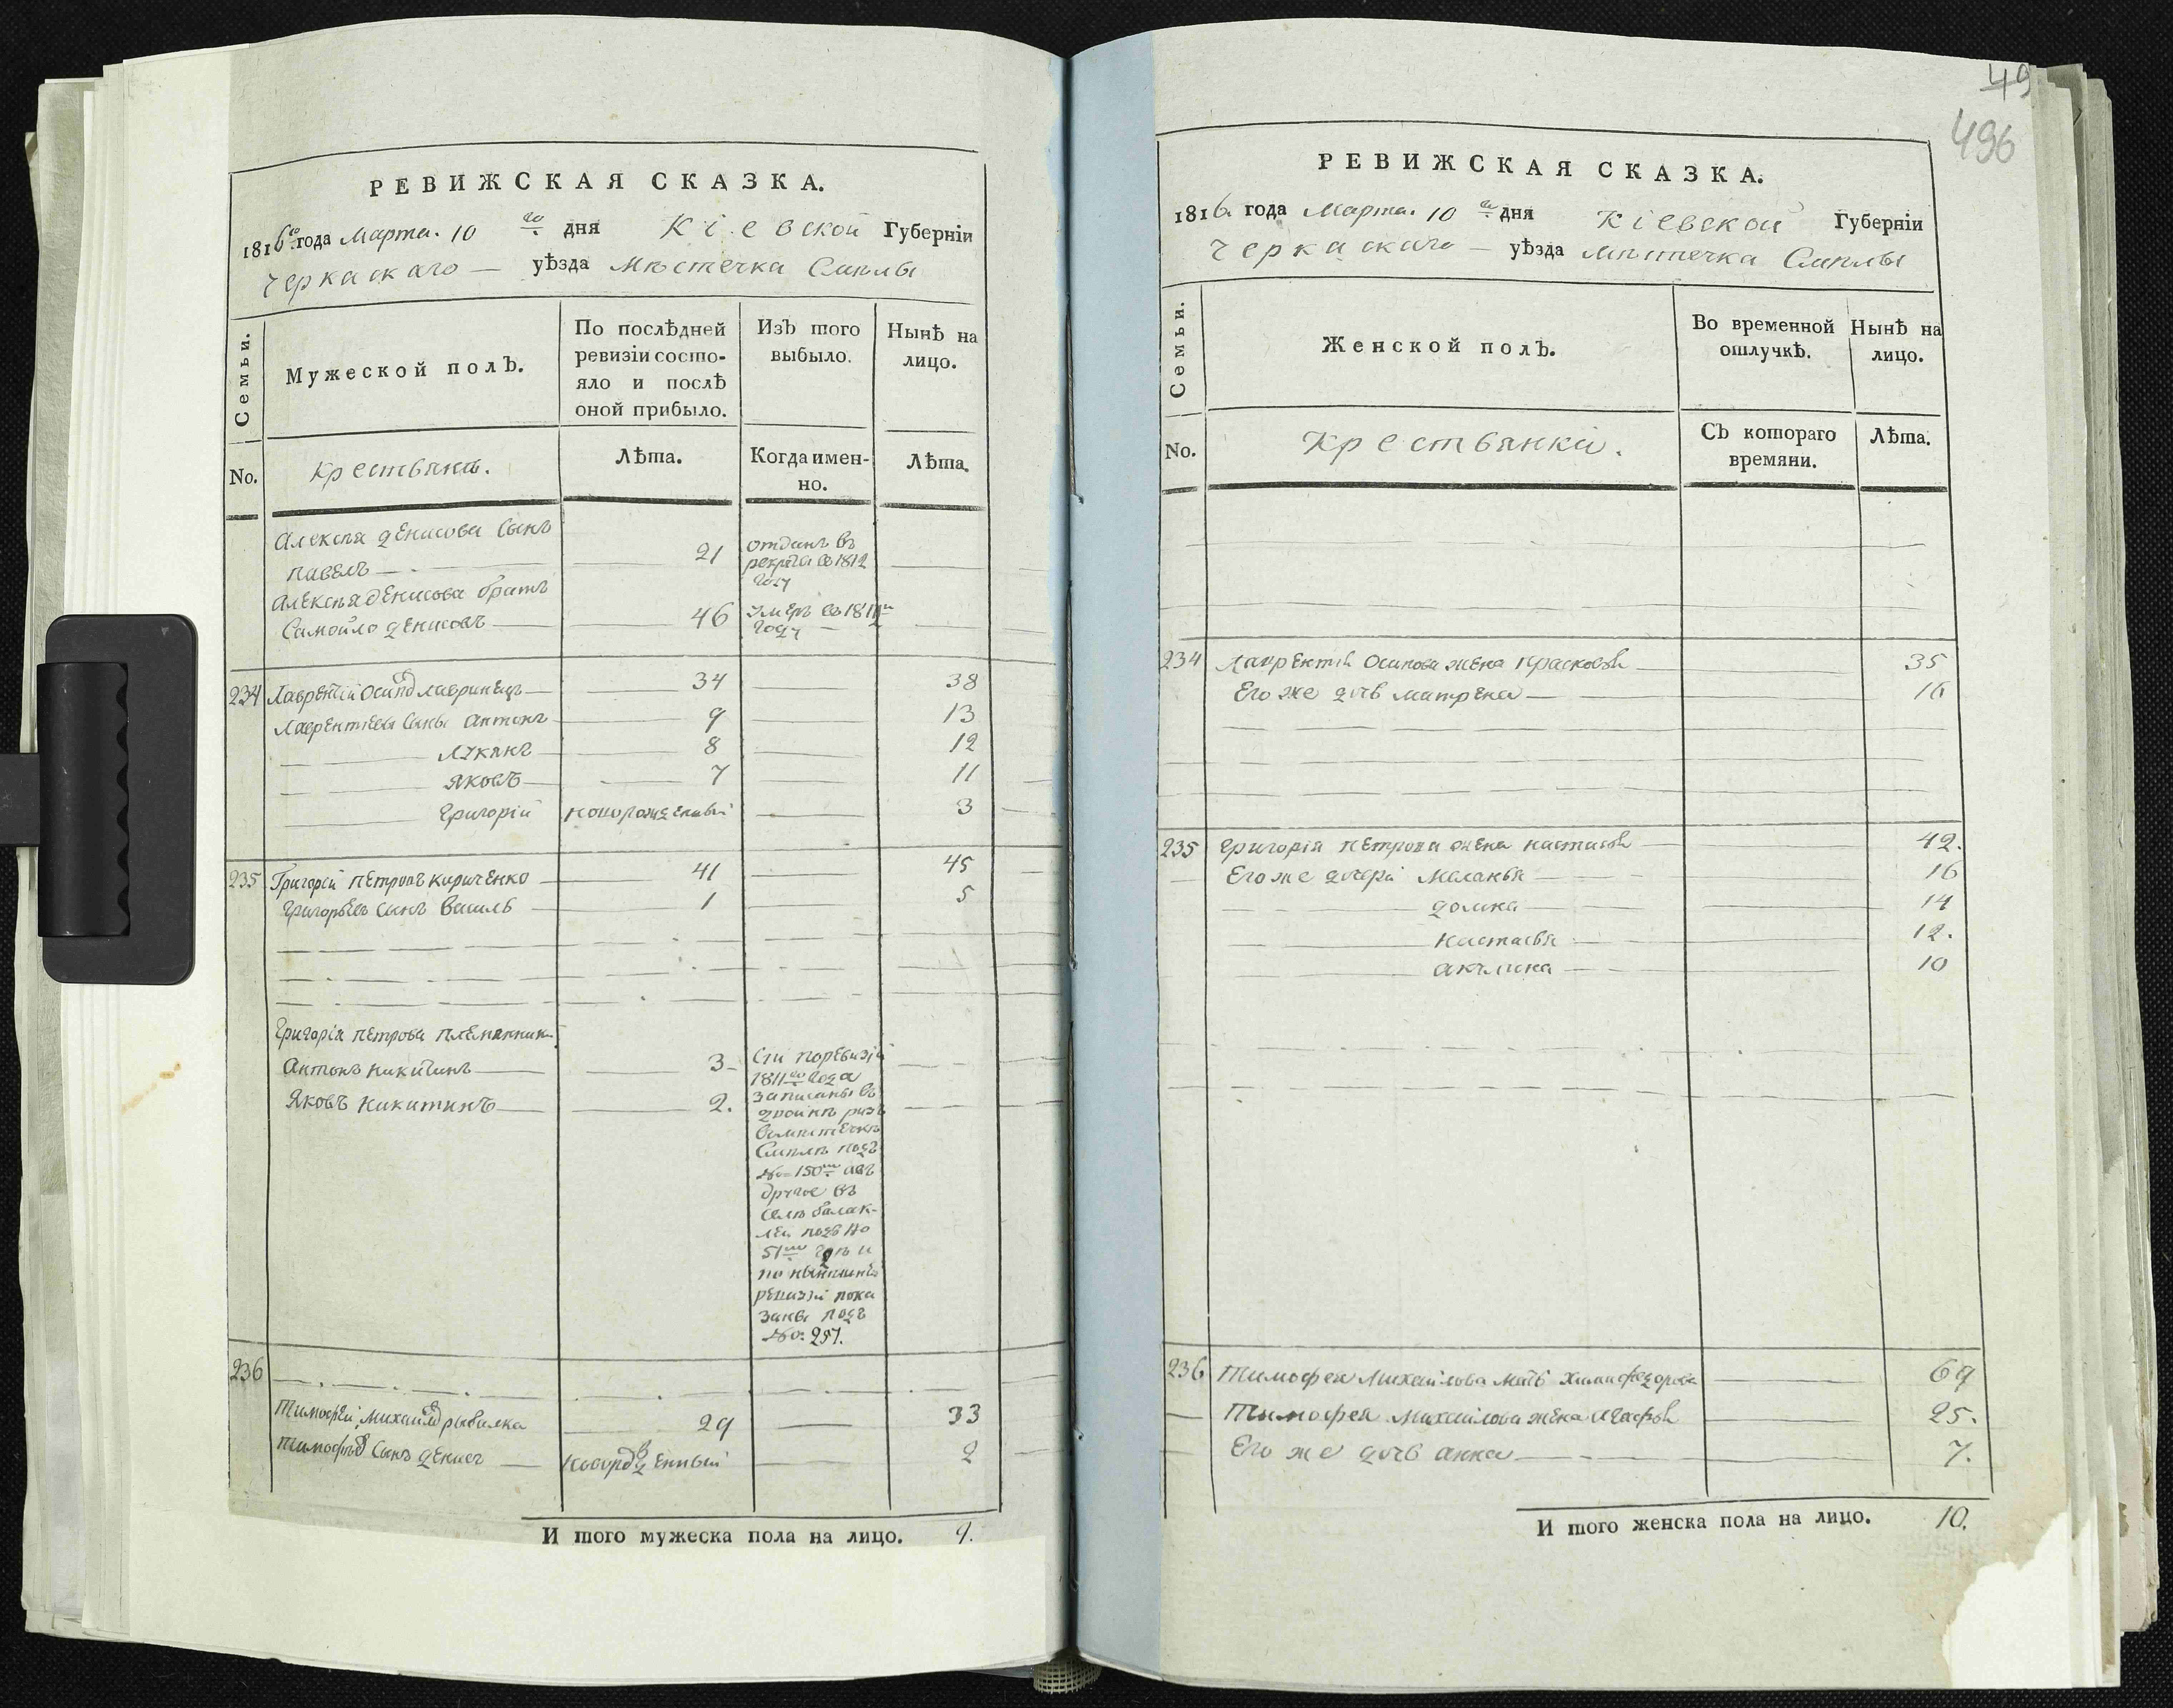 РЕВИЖСКАЯ СКАЗКА.
1816го года Марта. 10 го дня Кіевской Губерніи
Черкаскаго — уѣзда Мѣстечка Смѣлы
Семьи.
Мужеской полъ.
По послѣдней ревизіи состояло и послѣ оной прибыло.
Изъ того выбыло.
Нынѣ на лицо.
No.
Крестьяна.
Лѣта.
Когда именно.
Лѣта.
Алексѣя Денисова сынъ
Павелъ — 21 отданъ въ рекруты въ 1812 году
Алексѣя Денисова братъ
Самойло Денисовъ — 46 умеръ въ 1811м году
234 Лаврентій Осиповъ Лавринецъ — 34 — 38
Лаврентіевы сыны Антонъ — 9 — 13
Лукянъ — 8 — 12
Яковъ — 7 — 11
Григорій новорожденный — 3
235 Григорій Петровъ Кириченко — 41 — 45
Григорьевъ сынъ Василь — 1 — 5
Григорія Петрова племянник.
Антонъ Никитинъ — 3 —
Яковъ Никитинъ — 2.
Сіи по ревизіи
1811го года
записаны въ
двойнѣ разъ
в мѣстечкѣ
Смѣлѣ подъ
No 150м авъ
другое въ
селѣ Балак-
леи подъ No
51м гдѣ и
по нынѣшнѣ
ревизіи пока
заны подъ
No. 257.
236
Тимофей Михайловъ Рыбалка 29 — 33
Тимофѣевъ сынъ Денисъ — новорожденный — 2
И того мужеска пола на лицо. 9.
49
496
РЕВИЖСКАЯ СКАЗКА.
1816. года Марта. 10 го дня Кіевской Губерніи
Черкаскаго — уѣзда Мѣстечка Смѣлы
Семьи.
Женской полъ.
Во временной отлучкѣ.
Нынѣ на лицо.
No.
Крестьянки.
Съ котораго времяни.
Лѣта.
234 Лаврентія Осипова жена Прасковья — 35
Его же дочь Матрена — 16
235 Григорія Петрова жена Настасья — 42.
Его же дочери Меланья — 16
Домна — 14
Настасья — 12.
Акулина — 10
236 Тимофея Михайлова мать Химафедорова — 69
Тимофея Михайлова жена Агафья — 25.
Его же дочь Анна — 7.
И того женска пола на лицо. 10.